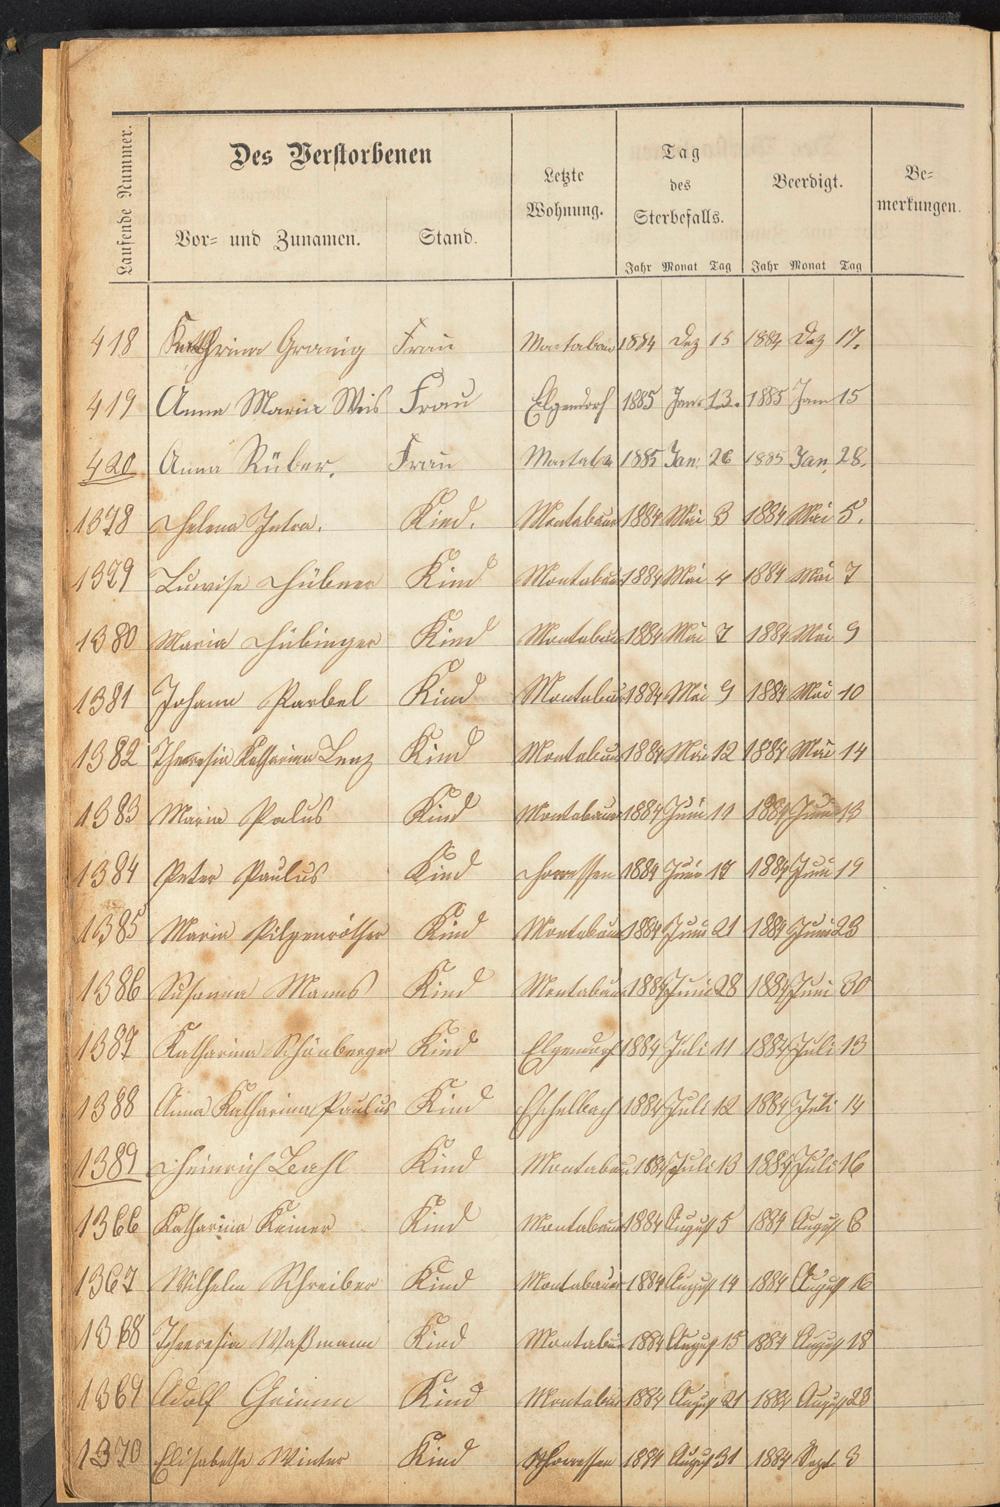 Laufende Nummer.
Des Verstorbenen
Vor= und Zunamen.
Stand.
Letzte
Wohnung.
Tag
des
Sterbefalls.
Jahr Monat Tag
Beerdigt.
Jahr Monat Tag
Be=
merkungen.
418 Kathrina Granig Frau 1884 Dez 15 1884 Dez 17.
419 Anna Maria Weis Frau Elgendorf 1885 Jan. 13. 1885 Jan 15
420 Anna Rüber. Frau 1885 Jan. 26 1885 Jan. 28.
1378 Helena Kind. Montabaur 1884 Mai 3 1884 Mai 5.
1379 Luwise Hübner Kind Montabaur 1884 Mai 4 1884 Mai 7
1380 Maria Hübinger Kind Montabaur 1884 Mai 7 1884 Mai 9
1381 Johann Kind Montabaur 1884 Mai 9 1884 Mai 10
1382 Theresia Katharina Lenz Kind Montabaur 1884 Mai 12 1884 Mai 14
1383 Maria Palus Kind Montabaur 1884 Juni 11 1884 Juni 13
1384 Peter Paulus Kind Horressen 1884 Juni 1884 Juni 19
1385 Maria Pilgenröther Kind Montabaur 1884 Juni 21 1884 Juni 23
1386 Susanna Manns Kind Montabaur 1884 Juni 28 1884 Juni 30
1387 Katharina Schönberger Kind Elgendorf 1884 Juli 11 1884 Juli 13
1388 Anna Katharina Paulus Kind Eschelbach 1884 Juli 12 1884 Juli 14
1389 Heinrich Kind Montabaur 1884 Juli 13 1884 Juli 16
1366 Katharina Keiner Kind Montabaur 1884 August 5 1884 August 6
1367 Wilhelm Schreiber Kind Montabaur 1884 August 14 1884 August 16
1368 Theresia Waßmann Kind Montabaur 1884 August 15 1884 August 18
1369 Adolf Grimm Kind Montabaur 1884 August 21 1884 August 23
1370 Elisabetha Winter Kind Horressen 1884 August 31 1884 Sept 3